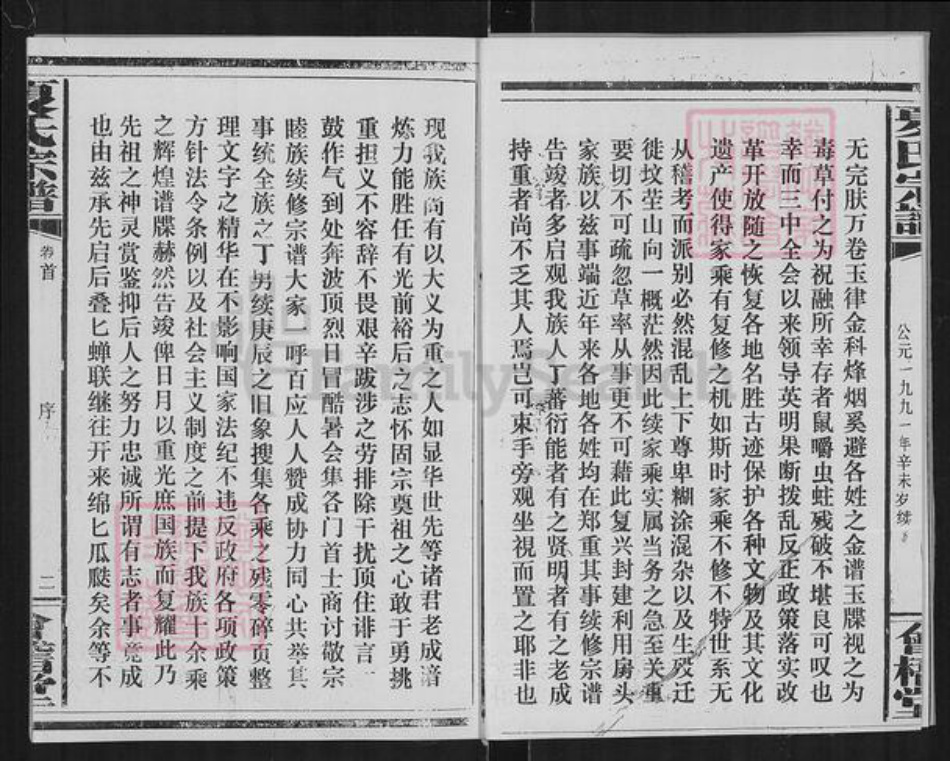 公元一九九一年辛未岁续
无完肤万卷玉律金科烽烟奚避各姓之金谱玉牒视之为
毒草付之为祝融所幸存者鼠嚼虫蛀残破不堪良可叹也
幸而三中全会以来领导英明果断拨乱反正政策落实改
革开放随之恢复各地名胜古迹保护各种文物及其文化
遗产使得家乘有复修之机如斯时家乘不修不特世系无
从稽考而派别必然混乱上下尊卑糊涂混杂以及生殁迁
徙坟茔山向一概茫然因此续家乘实属当务之急至关重
要切不可疏忽草率从事更不可藉此复兴封建利用房头
家族以兹事端近年来各地各姓均在郑重其事续修宗谱
告竣者多启观我族人丁蕃衍能者有之贤明者有之老成
持重者尚不乏其人焉岂可束手旁观坐視而置之耶非也
现我族尚有以大义为重之人如显华世先等诸君老成谙
炼力能胜任有光前裕后之志怀固宗奠祖之心敢于勇挑
重担义不容辞不畏艰辛跋涉之劳排除干扰顶住诽言
鼓作气到处奔波顶烈日冒酷暑会集各门首士商讨敬宗
睦族续修宗谱大家一呼百应人人赞成协力同心共举其
事统全族之丁男续庚辰之旧象搜集各乘之残零碎页整
理文字之精华在不影响国家法纪不违反政府各项政策
方针法令条例以及社会主义制度之前提下我族十余乘
之辉煌谱牒赫然告竣俾日月以重光庶国族而复耀此乃
先祖之神灵赏鉴抑后人之努力忠诚所谓有志者事竟成
也由兹承先启后叠匕蝉联继往开来绵匕瓜瓞矣余等不
氏宗譜
卷首
序
二
FamilySearch